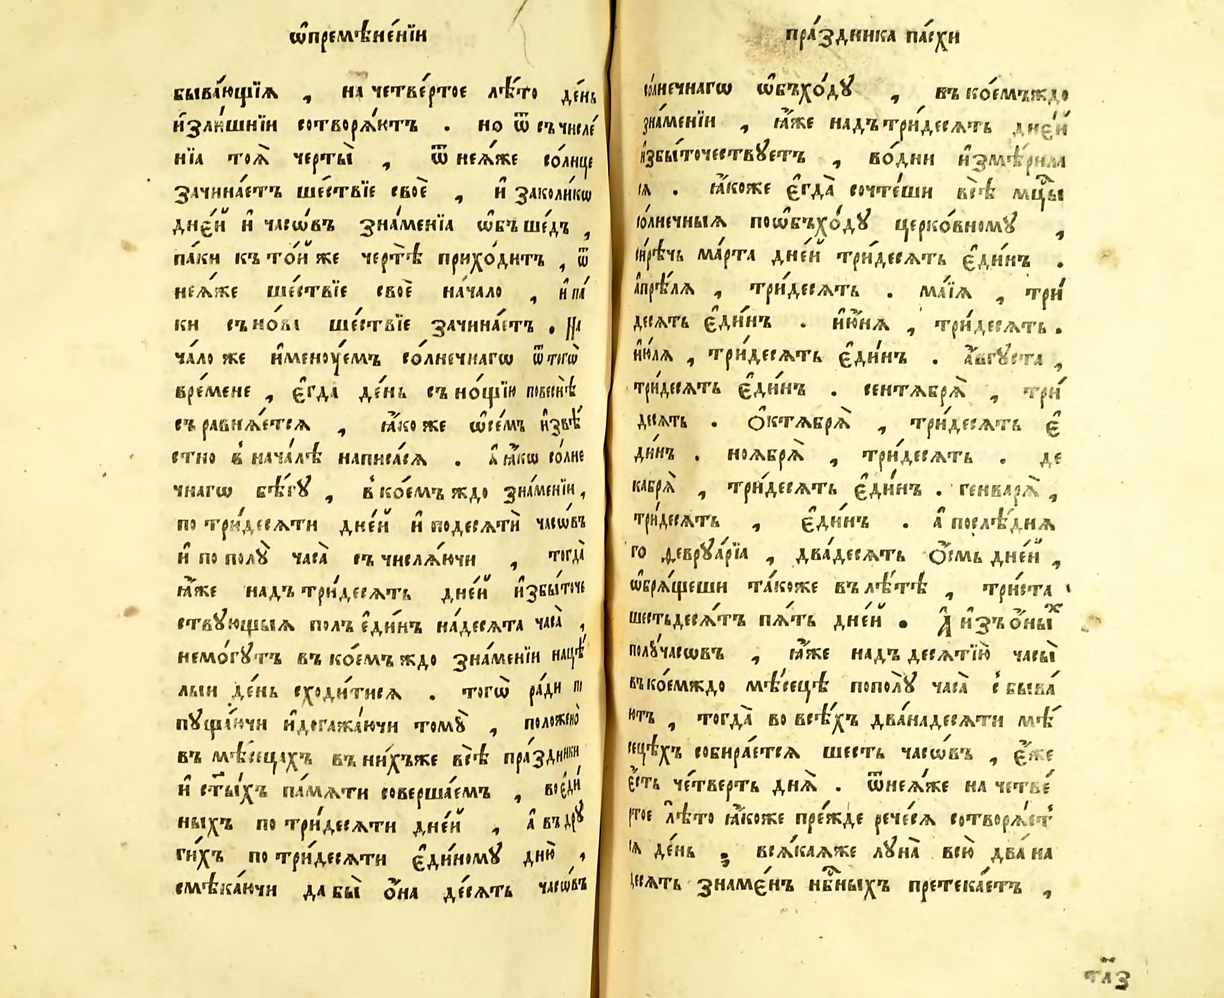 ѡ҆премѣне́нїи
быва́ющїѧ , на четве́ртое лѣ́то де́нь
и҆злѝшнїи сотворѧ́ютъ . но ѿ съчисле́
нїа тоѧ̀ черты̀ , ѿ неѧ́же со́лнце
зачина́етъ ше́ствїе своѐ , и҆ заколи́кѡ
дне́й и҆ часѡ́въ зна́менїа ѡ҆бъше́дъ ,
па́ки къ то́йже чертѣ̀ прихо́дитъ , ѿ
неѧ́же ше́ствїе своѐ нача́ло , и҆ па́
ки съно́ва ше́ствїе зачина́етъ . На
ча́ло же и҆менꙋ́емъ со́лнечнагѡ ѿ тогѡ̀
вре́мене , є҆гда̀ де́нь съ но́щїю повеснѣ̀
съравнѧ́етсѧ , ꙗ҆́ко же ѡ҆се́мъ и҆звѣ́
стно в҆ нача́лѣ написа́сѧ . А҆ ꙗ҆́кѡ со́лне
чнагѡ бѣ́гꙋ , в҆ ко́емъждо зна́менїи ,
по три́десѧти дне́й и҆ подесѧтѝ часѡ́въ
и҆ по полꙋ̀ часа̀ съчислѧ́ючи , тогда̀
ꙗ҆̀же надъ три́десѧть дне́й и҆збы́точе
ствꙋющыѧ полъ є҆ди́нъ на́десѧта часа̀ ,
немо́гꙋтъ въ ко́емъждо зна́менїи на цѣ́
лыи де́нь сходи́тисѧ . тогѡ̀ ра́ди
пꙋща́ючи и҆догажа́ючи томꙋ̀ , положено̀
въ мѣ́сѧцахъ въ ни́хъже всѣ̀ пра́здники
и҆ ст҃ы́хъ па́мѧти соверша́емъ , во є҆ди́
ныхъ по три́десѧти дне́й , а҆ въ дрꙋ
ги́хъ по три́десѧти є҆ди́номꙋ дню̀ ,
смѣка́ючи дабы̀ ѻ҆на де́сѧть часѡ́въ
пра́здника па́схи
со́лнечнагѡ ѡ҆бъхо́дꙋ , въ ко́емъждо
зна́менїи , ꙗ҆̀же надъ три́десѧть дне́й
и҆збы́точествꙋетъ , во́дни и҆змѣ́рила
сѧ . ꙗ҆́коже є҆гда̀ сочте́ши всѣ̀ мц҃ы
со́лнечныѧ поѡ҆бъхо́дꙋ церко́вномꙋ ,
си́рѣчь ма́рта дне́й три́десѧть є҆ди́нъ .
а҆прѣ́лѧ , три́десѧть . ма́їѧ , три́
десѧть є҆ди́нъ . и҆ю́нѧ , три́десѧть .
и҆ю́лѧ , три́десѧть є҆ди́нъ . а҆́вгꙋста ,
три́десѧть є҆ди́нъ . сентѧбрѧ̀ , три́
десѧть . Ѻ҆ктѧбрѧ̀ , три́десѧть є҆
ди́нъ . ноѧбрѧ̀ , три́десѧть . де
кабрѧ̀ , три́десѧть є҆ди́нъ . генварѧ̀ ,
три́десѧть , є҆ди́нъ . а҆ послѣ́днѧ
го феврꙋа́рїа , два́десѧть ѻ҆́смь дне́й ,
ѡ҆брѧ́щеши та́коже въ лѣ́тѣ , три́ста
шестьдесѧ́тъ пѧ́ть дне́й . А҆ и҆зъ ѻ҆́ныхъ
полꙋчасѡ́въ , ꙗ҆̀же надъ десѧтїю̀ часы̀
въкое́мждо мѣ́сѧцѣ по полꙋ̀ часа̀ с҆быва́
ютъ , тогда̀ во всѣ́хъ двана́десѧти мѣ́
сѧцѣхъ собира́етсѧ ше́сть часѡ́въ , є҆́же
є҆́сть че́тверть днѧ̀ . ѿнеѧ́же на четве́
ртое лѣ́то ꙗ҆́коже пре́жде рече́сѧ сотворѧ́ет
сѧ де́нь ; всѧ́каѧже лꙋна̀ всю̀ два на
десѧть знаме́нъ нб҃ныхъ претека́етъ ,